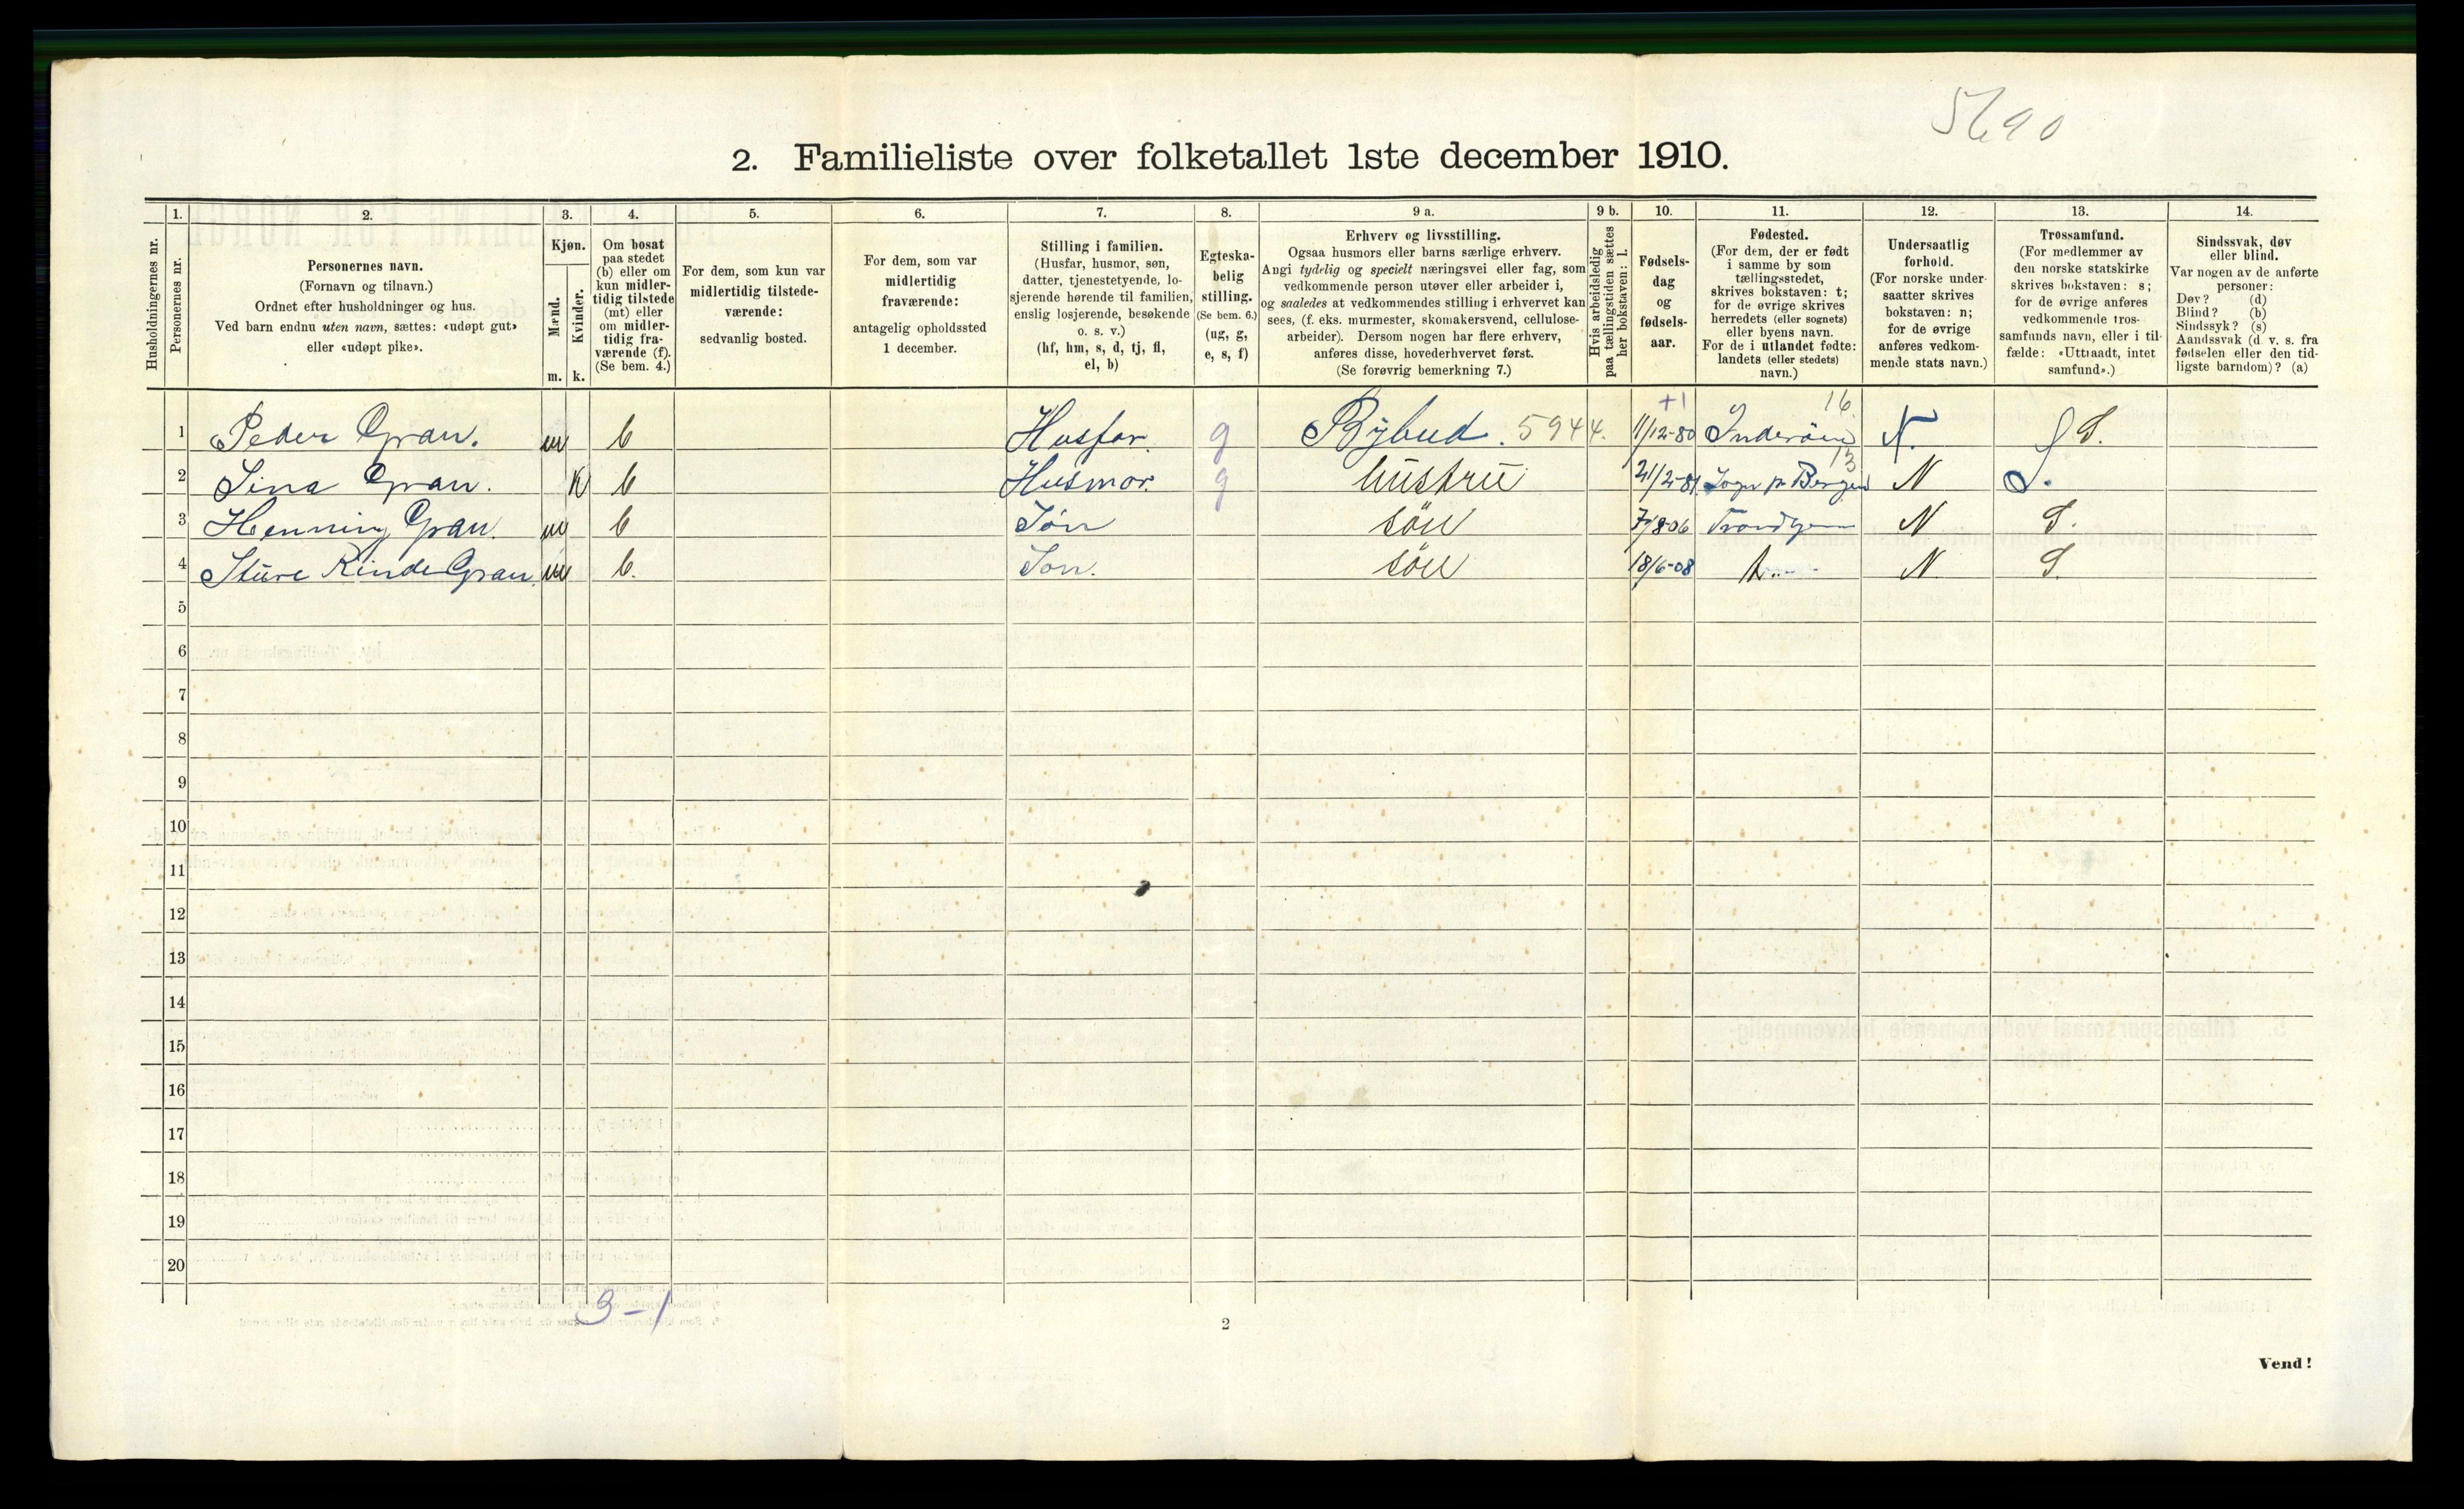 5690
2. Familieliste over folketallet 1ste december 1910.
1. 2. 3. 4. 5. 6. 7. 8. 9 a. 9 b. 10. 11. 12. 13. 14.
Husholdningernes nr.
Personernes nr.
Personernes navn.
(Fornavn og tilnavn.)
Ordnet efter husholdninger og hus.
Ved barn endnu uten navn, sættes: «udøpt gut»
eller «udøpt pike».
Kjøn.
Mænd.
Kvinder.
m. k.
Om bosat
paa stedet
(b) eller om
kun midler-
tidig tilstede
(mt) eller
om midler-
tidig fra-
værende (f).
(Se bem. 4.)
For dem, som kun var
midlertidig tilstede-
værende:
sedvanlig bosted.
For dem, som var
midlertidig
fraværende:
antagelig opholdssted
1 december.
Stilling i familien.
(Husfar, husmor, søn,
datter, tjenestetyende, lo-
sjerende hørende til familien,
enslig losjerende, besøkende
o. s. v.)
(hf, hm, s, d, tj, fl,
el, b)
Egteska-
belig
stilling.
(Se bem. 6.)
(ug, g,
e, s, f)
Erhverv og livsstilling.
Ogsaa husmors eller barns særlige erhverv.
Angi tydelig og specielt næringsvei eller fag, som
vedkommende person utøver eller arbeider i,
og saaledes at vedkommendes stilling i erhvervet kan
sees, (f. eks. murmester, skomakersvend, cellulose-
arbeider). Dersom nogen har flere erhverv,
anføres disse, hovederhvervet først.
(Se forøvrig bemerkning 7.)
Hvis arbeidsledig
paa tællingstiden sættes
her bokstaven: l.
Fødsels-
dag
og
fødsels-
aar.
Fødested.
(For dem, der er født
i samme by som
tællingsstedet,
skrives bokstaven: t;
for de øvrige skrives
herredets (eller sognets)
eller byens navn.
For de i utlandet fødte:
landets (eller stedets)
navn.)
Undersaatlig
forhold.
(For norske under-
saatter skrives
bokstaven: n;
for de øvrige
anføres vedkom-
mende stats navn.)
Trossamfund.
(For medlemmer av
den norske statskirke
skrives bokstaven: s;
for de øvrige anføres
vedkommende tros-
samfunds navn, eller i til-
fælde: «Uttraadt, intet
samfund».)
Sindssvak, døv
eller blind.
Var nogen av de anførte
personer:
Døv? (d)
Blind? (b)
Sindssyk? (s)
Aandssvak (d. v. s. fra
fødselen eller den tid-
ligste barndom)? (a)
+1 16
1 Peder Gran. m b Husfar. g Bybud. 5944. 11/12-80 Inderöen N. S.
13
2 Sina Gran. K b Husmor. g hustru 21/2-81 Sogn pr Bergen N S.
3 Henning Gran. m b Sön sön 7/8 06 Trondhjem N S.
4 Sture Rinde Gran. m b. Son. sön 18/6-08 N. S.
5
6
7
8
9
10
11
12
13
14
15
16
17
18
19
20
3-1
2
Vend!